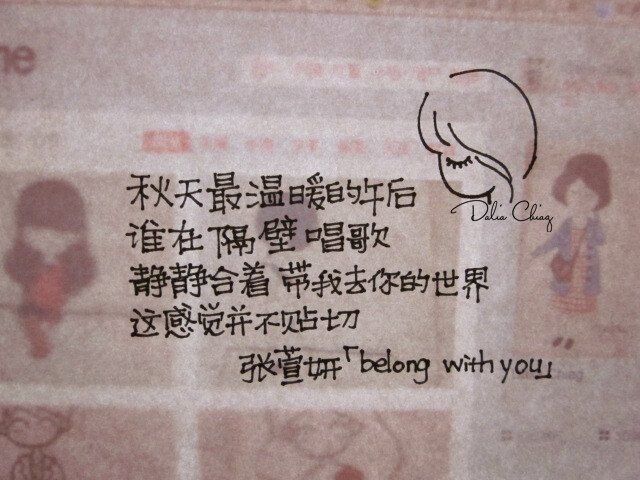 me
Dalia Chiag
秋天最温暖的午后
谁在隔壁唱歌
静静合着 带我去你的世界
这感觉并不贴切
张萱妍「belong with you」